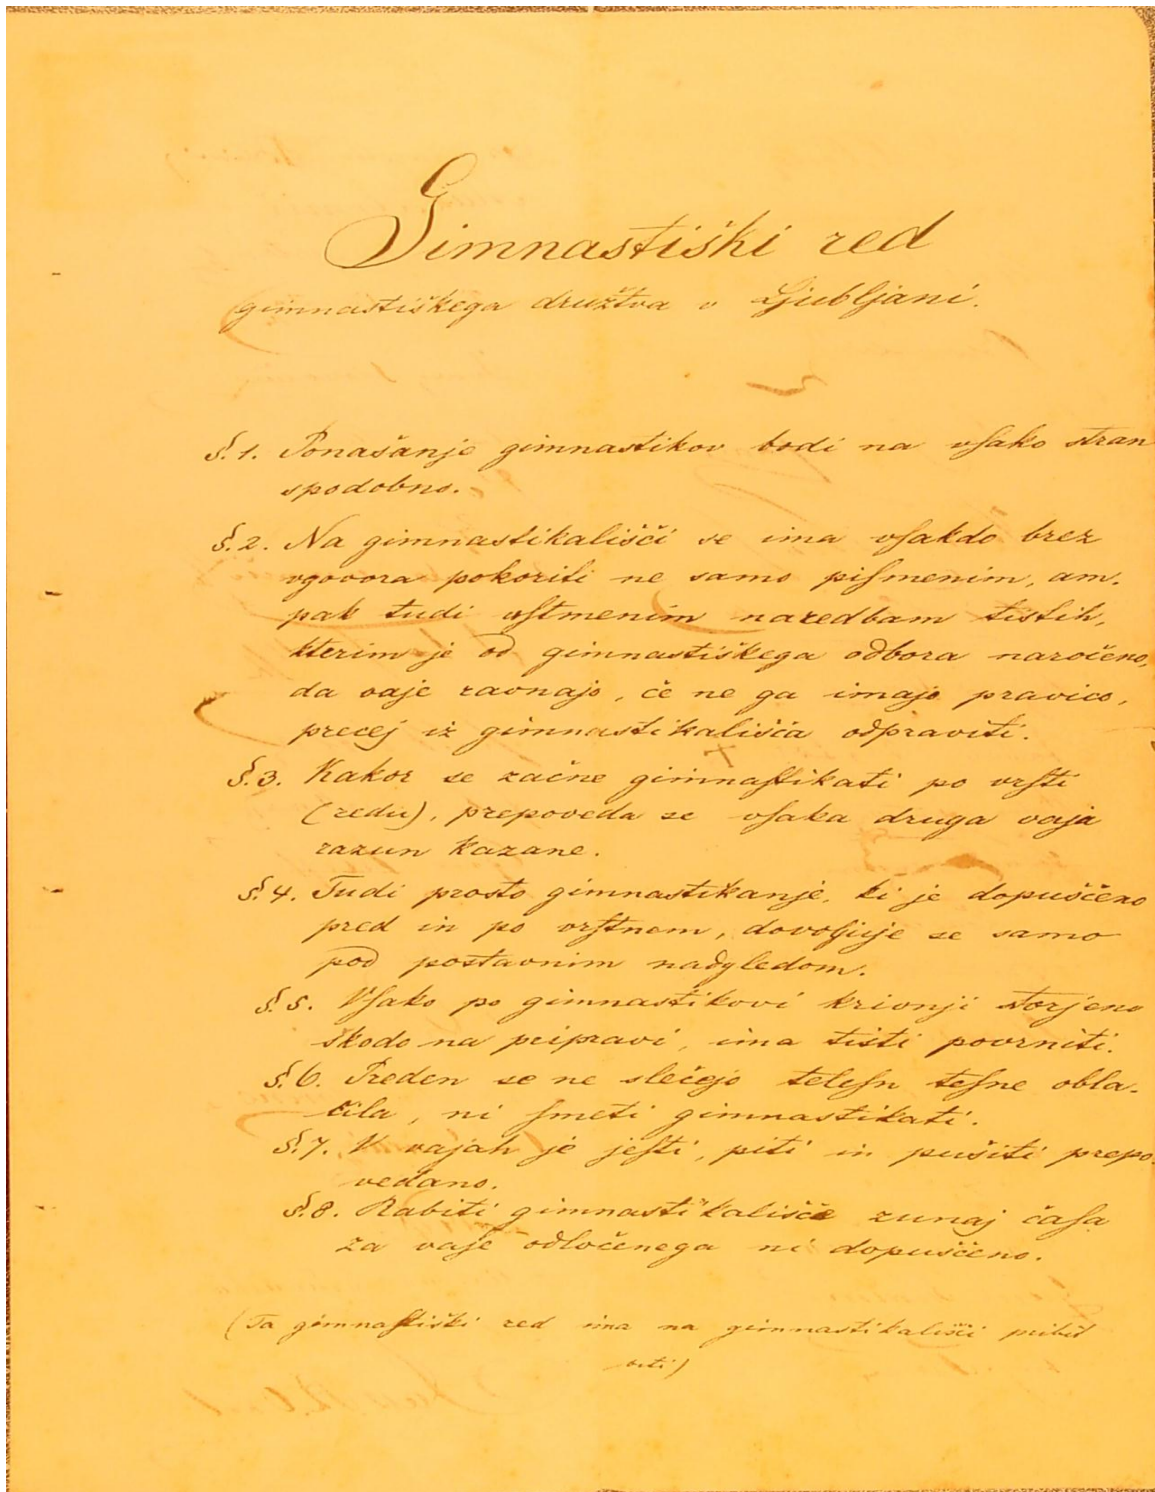 Gimnastiški red
gimnastiškega družtva v Ljubljani.
§.1. Ponašanje gimnastikov bodi na vſako stran
spodobno.
§.2. Na gimnastikališči se ima vſakdo brez
ugovora pokoriti ne samo piſmenim, am-
pak tudi uſtmenim naredbam tistih,
kterim je od gimnastiškega odbora naročeno,
da vaje ravnajo, če ne ga imajo pravico,
precej iz gimnastikališča odpraviti.
§.3. Kakor se začne gimnaſtikati po vrſti
(redu), prepoveda se vſaka druga vaja
razun kazane.
§.4. Tudi prosto gimnastikanje, ki je dopuščeno
pred in po vrſtnem, dovoljuje se samo
pod postavnim nadgledom.
§.5. Vſako po gimnastikovi krivnji storjeno
škodo na pripravi, ima tisti povrniti.
§.6. Preden se ne slečejo teleſn teſne obla-
čila, ni ſmeti gimnastikati.
§.7. V vajah je jeſti, piti in pušiti prepo-
vedano.
§.8. Rabiti gimnastikališče zunaj čaſa
za vaje odločenega ni dopuščeno.
(Ta gimnaſtiški red ima na gimnastikališči pribit
biti)